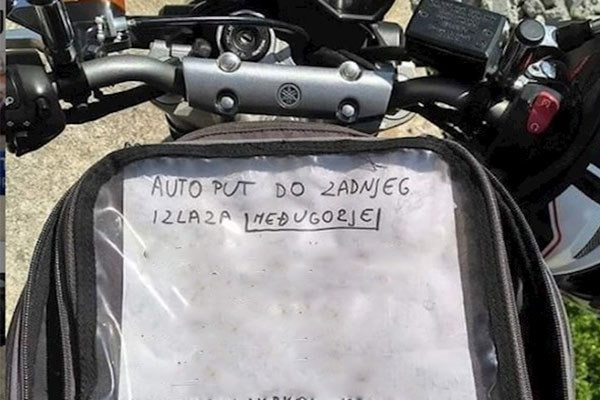 AUTO PUT DO ZADNJEG
IZLAZA MEĐUGORJE